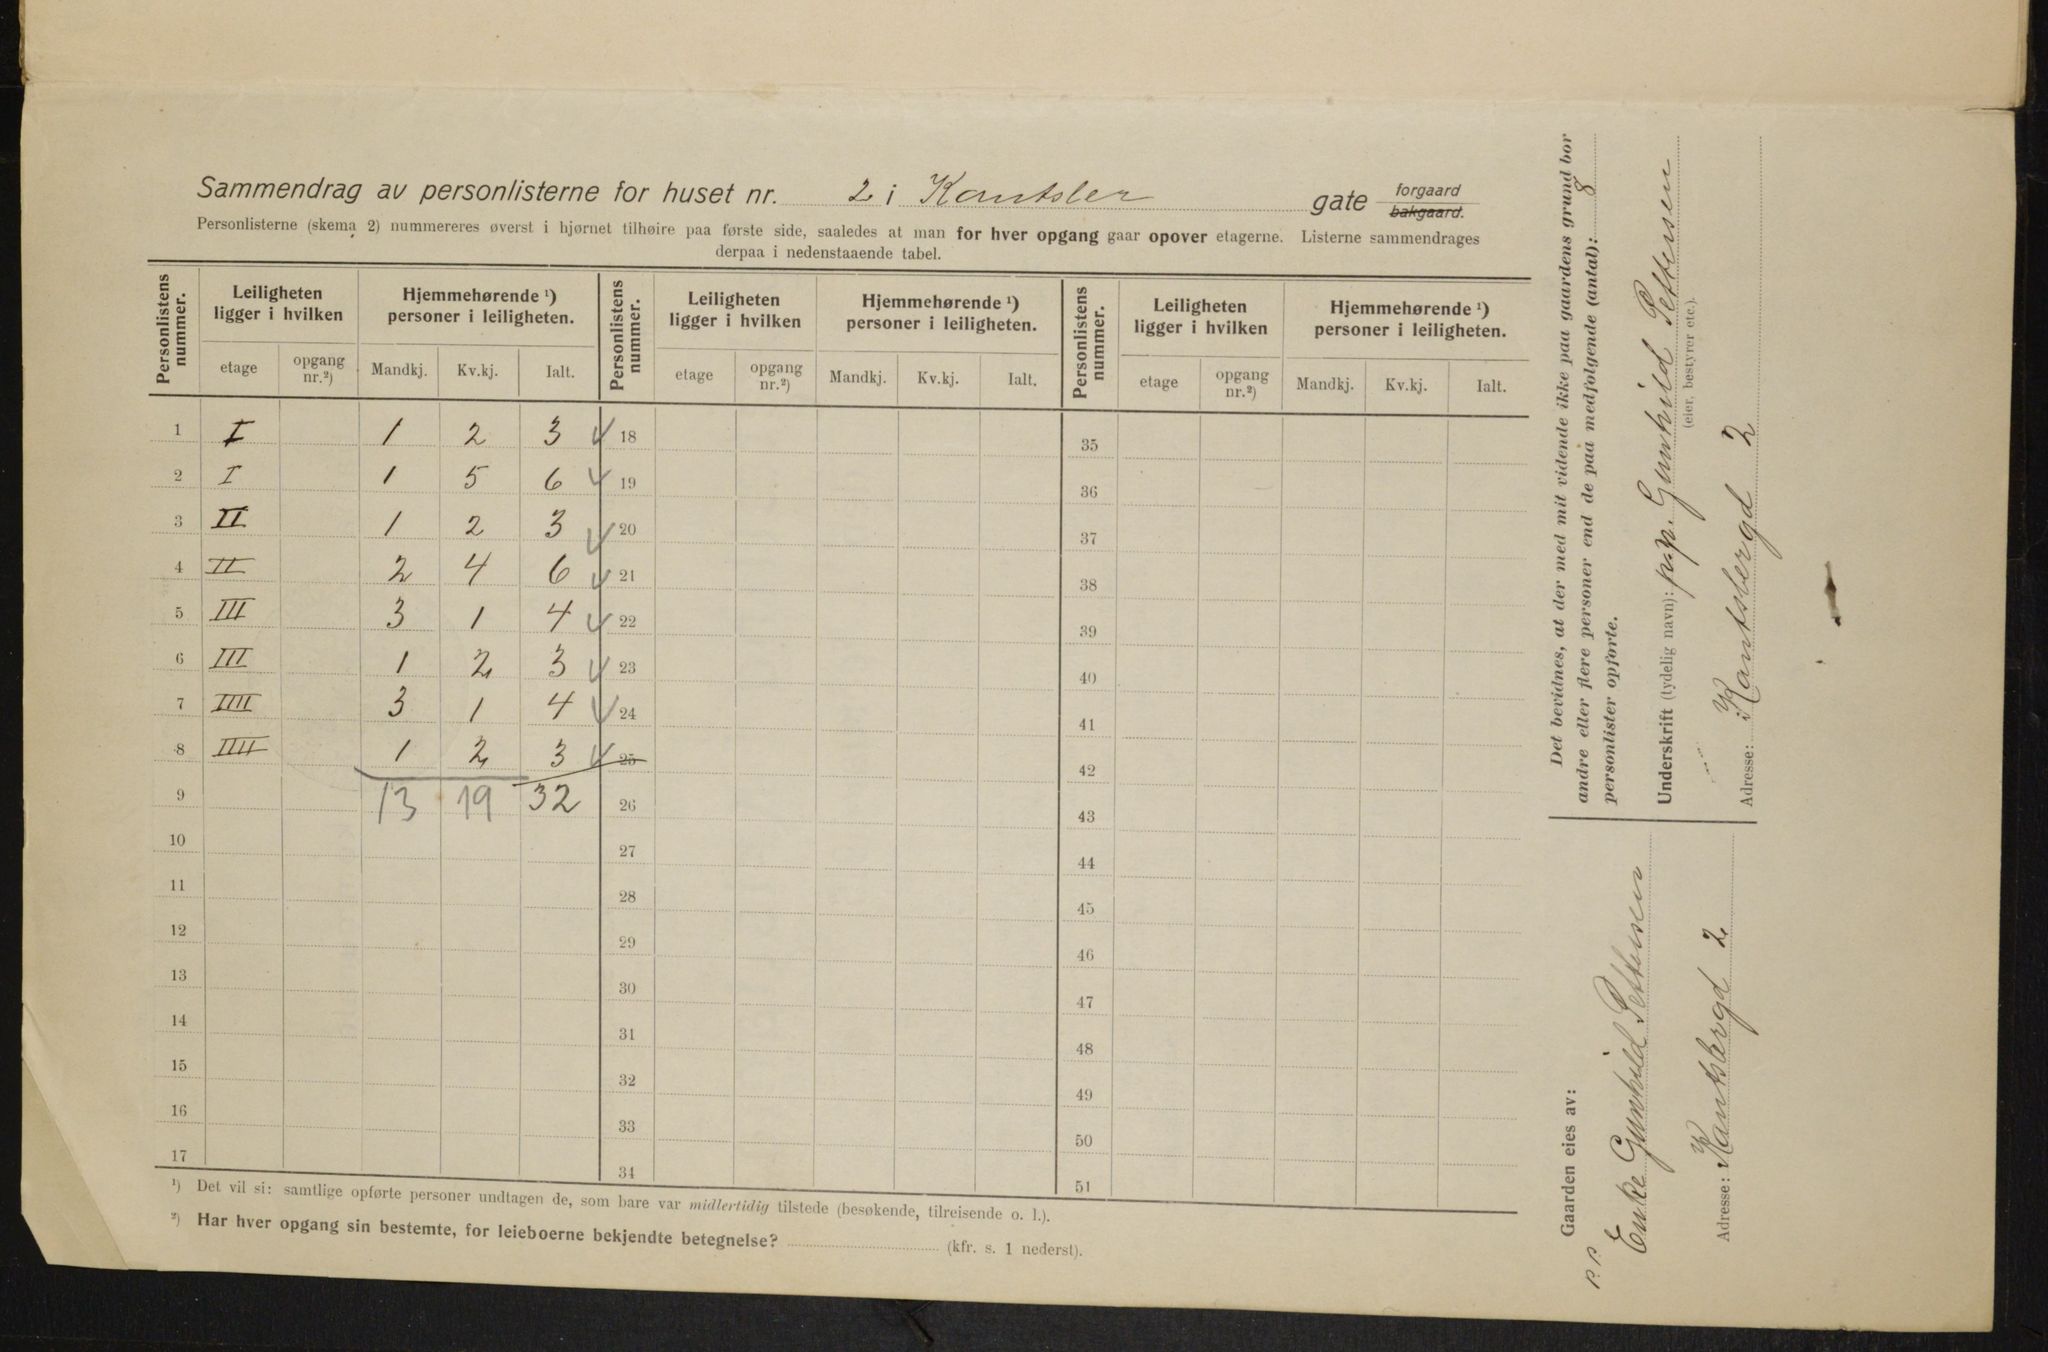 Sammendrag av personlisterne for huset nr. 2 i Kantsler gate forgaard bakgaard.
Personlisterne (skema 2) nummereres øverst i hjørnet tilhøire paa første side, saaledes at man for hver opgang gaar opover etagerne. Listerne sammendrages
derpaa i nedenstaaende tabel.
Personlistens nummer. Leiligheten ligger i hvilken Hjemmehørende ¹) personer i leiligheten. Personlistens nummer. Leiligheten ligger i hvilken Hjemmehørende ¹) personer i leiligheten. Personlistens nummer. Leiligheten ligger i hvilken Hjemmehørende ¹) personer i leiligheten.
etage opgang nr.²) Mandkj. Kv.kj. Ialt. etage opgang nr.²) Mandkj. Kv.kj. Ialt. etage opgang nr.²) Mandkj. Kv.kj. Ialt.
1 I 1 2 3 18 35
2 I 1 5 6 19 36
3 II 1 2 3 20 37
4 II 2 4 6 21 38
5 III 3 1 4 22 39
6 III 1 2 3 23 40
7 IIII 3 1 4 24 41
8 IIII 1 2 3 25 42
9 13 19 32 26 43
10 27 44
11 28 45
12 29 46
13 30 47
14 31 48
15 32 49
16 33 50
17 34 51
¹) Det vil si: samtlige opførte personer undtagen de, som bare var midlertidig tilstede (besøkende, tilreisende o. l.).
²) Har hver opgang sin bestemte, for leieboerne bekjendte betegnelse? (kfr. s. 1 nederst).
Det bevidnes, at der med mit vidende ikke paa gaardens grund bor
andre eller flere personer end de paa medfølgende (antal): 8
personlister opførte.
Underskrift (tydelig navn): p.p. Gunhild Pettersen
(eier, bestyrer etc.).
Adresse: Kantslergd 2
Gaarden eies av:
p.p.
Enke Gunhild Pettersen
Adresse: Kantslergd 2